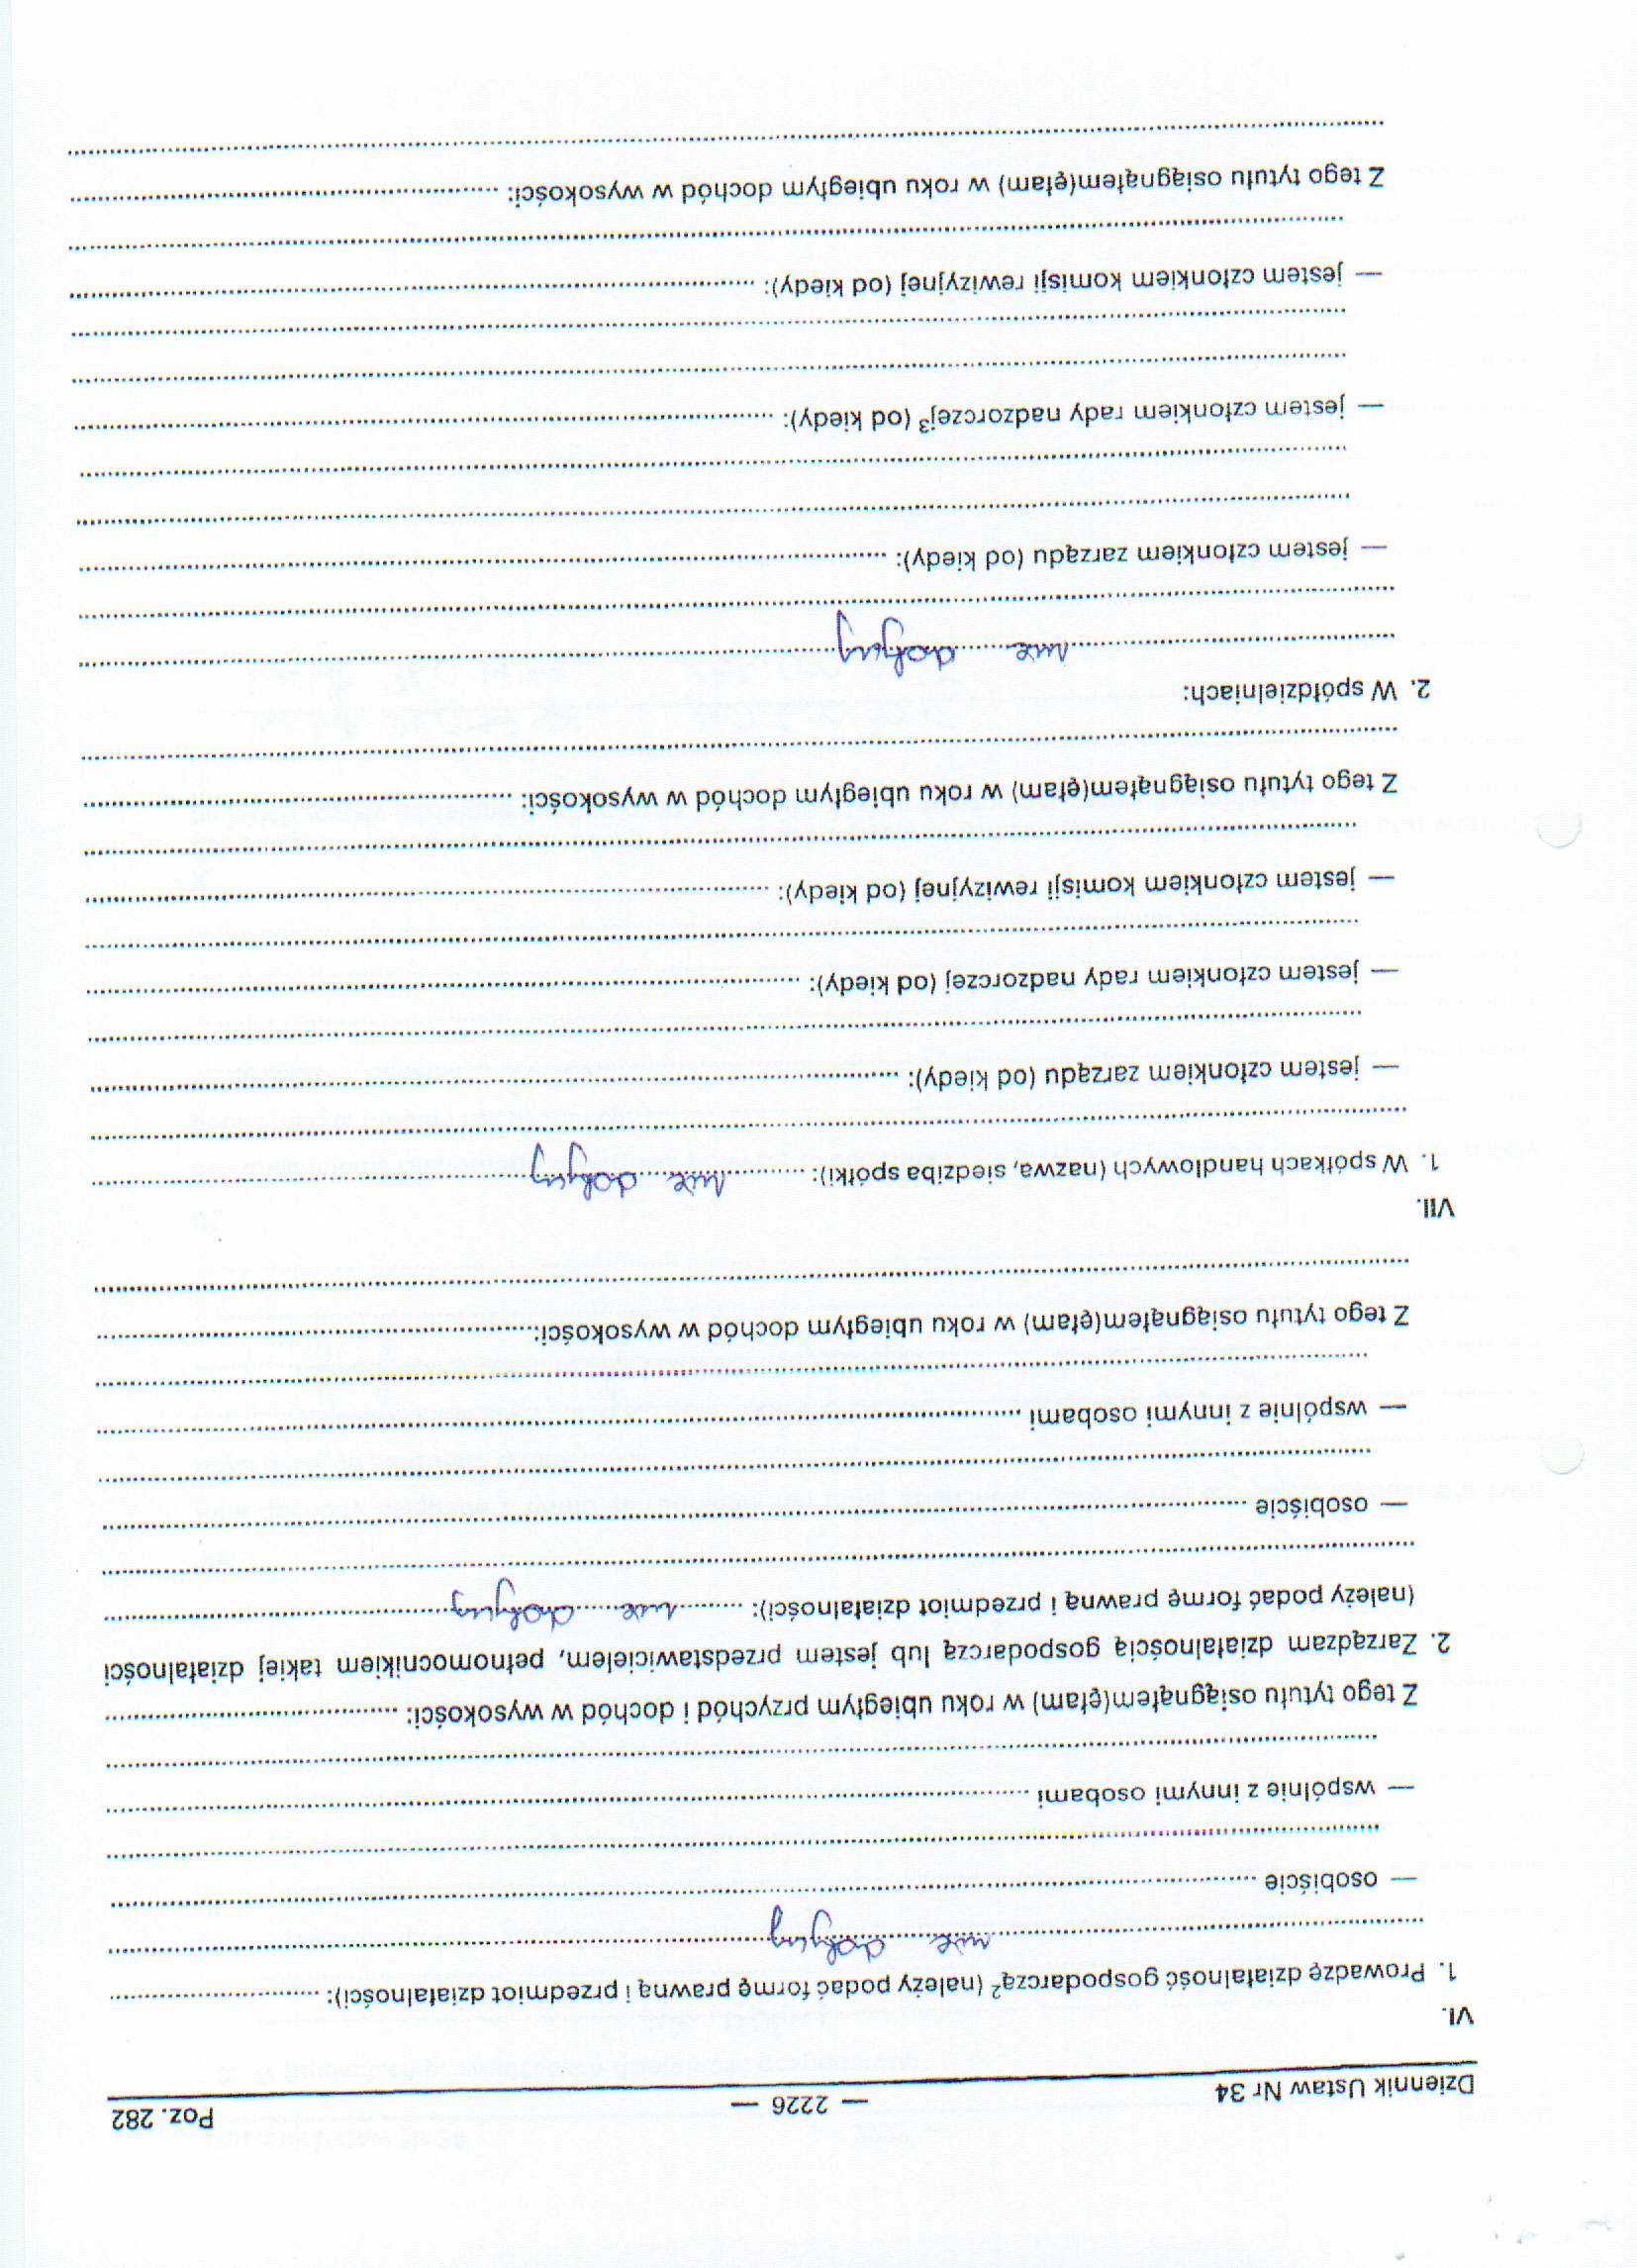 Dziennik Ustaw Nr 34 — 2226 — Poz. 282
VI.
1. Prowadzę działalność gospodarczą² (należy podać formę prawną i przedmiot działalności): ........
nie dotyczy
— osobiście ........
........
— wspólnie z innymi osobami ........
........
Z tego tytułu osiągnąłem(ęłam) w roku ubiegłym przychód i dochód w wysokości: ........
2. Zarządzam działalnością gospodarczą lub jestem przedstawicielem, pełnomocnikiem takiej działalności
(należy podać formę prawną i przedmiot działalności): ........ nie dotyczy ........
........
— osobiście ........
........
— wspólnie z innymi osobami ........
........
Z tego tytułu osiągnąłem(ęłam) w roku ubiegłym dochód w wysokości: ........
........
VII.
1. W spółkach handlowych (nazwa, siedziba spółki): ........ nie dotyczy ........
........
— jestem członkiem zarządu (od kiedy): ........
........
— jestem członkiem rady nadzorczej (od kiedy): ........
........
— jestem członkiem komisji rewizyjnej (od kiedy): ........
........
Z tego tytułu osiągnąłem(ęłam) w roku ubiegłym dochód w wysokości: ........
........
2. W spółdzielniach:
nie dotyczy
........
— jestem członkiem zarządu (od kiedy): ........
........
........
— jestem członkiem rady nadzorczej³ (od kiedy): ........
........
........
— jestem członkiem komisji rewizyjnej (od kiedy): ........
........
Z tego tytułu osiągnąłem(ęłam) w roku ubiegłym dochód w wysokości: ........
........